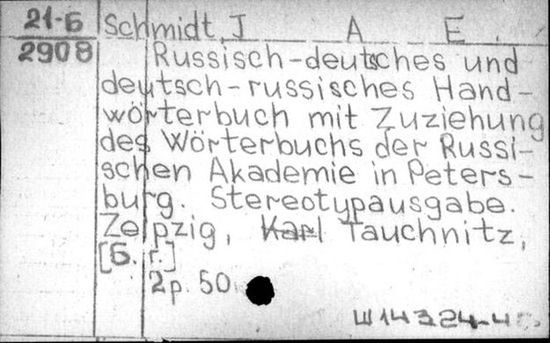 21-Б
2908
Schmidt, J A E.
Russisch-deutsches und
deutsch-russisches Hand-
wörterbuch mit Zuziehung
des Wörterbuchs der Russi-
schen Akademie in Peters-
burg. Stereotypausgabe.
Zeipzig, Karl Tauchnitz,
[Б. г.]
2р. 50
Ш14324-4